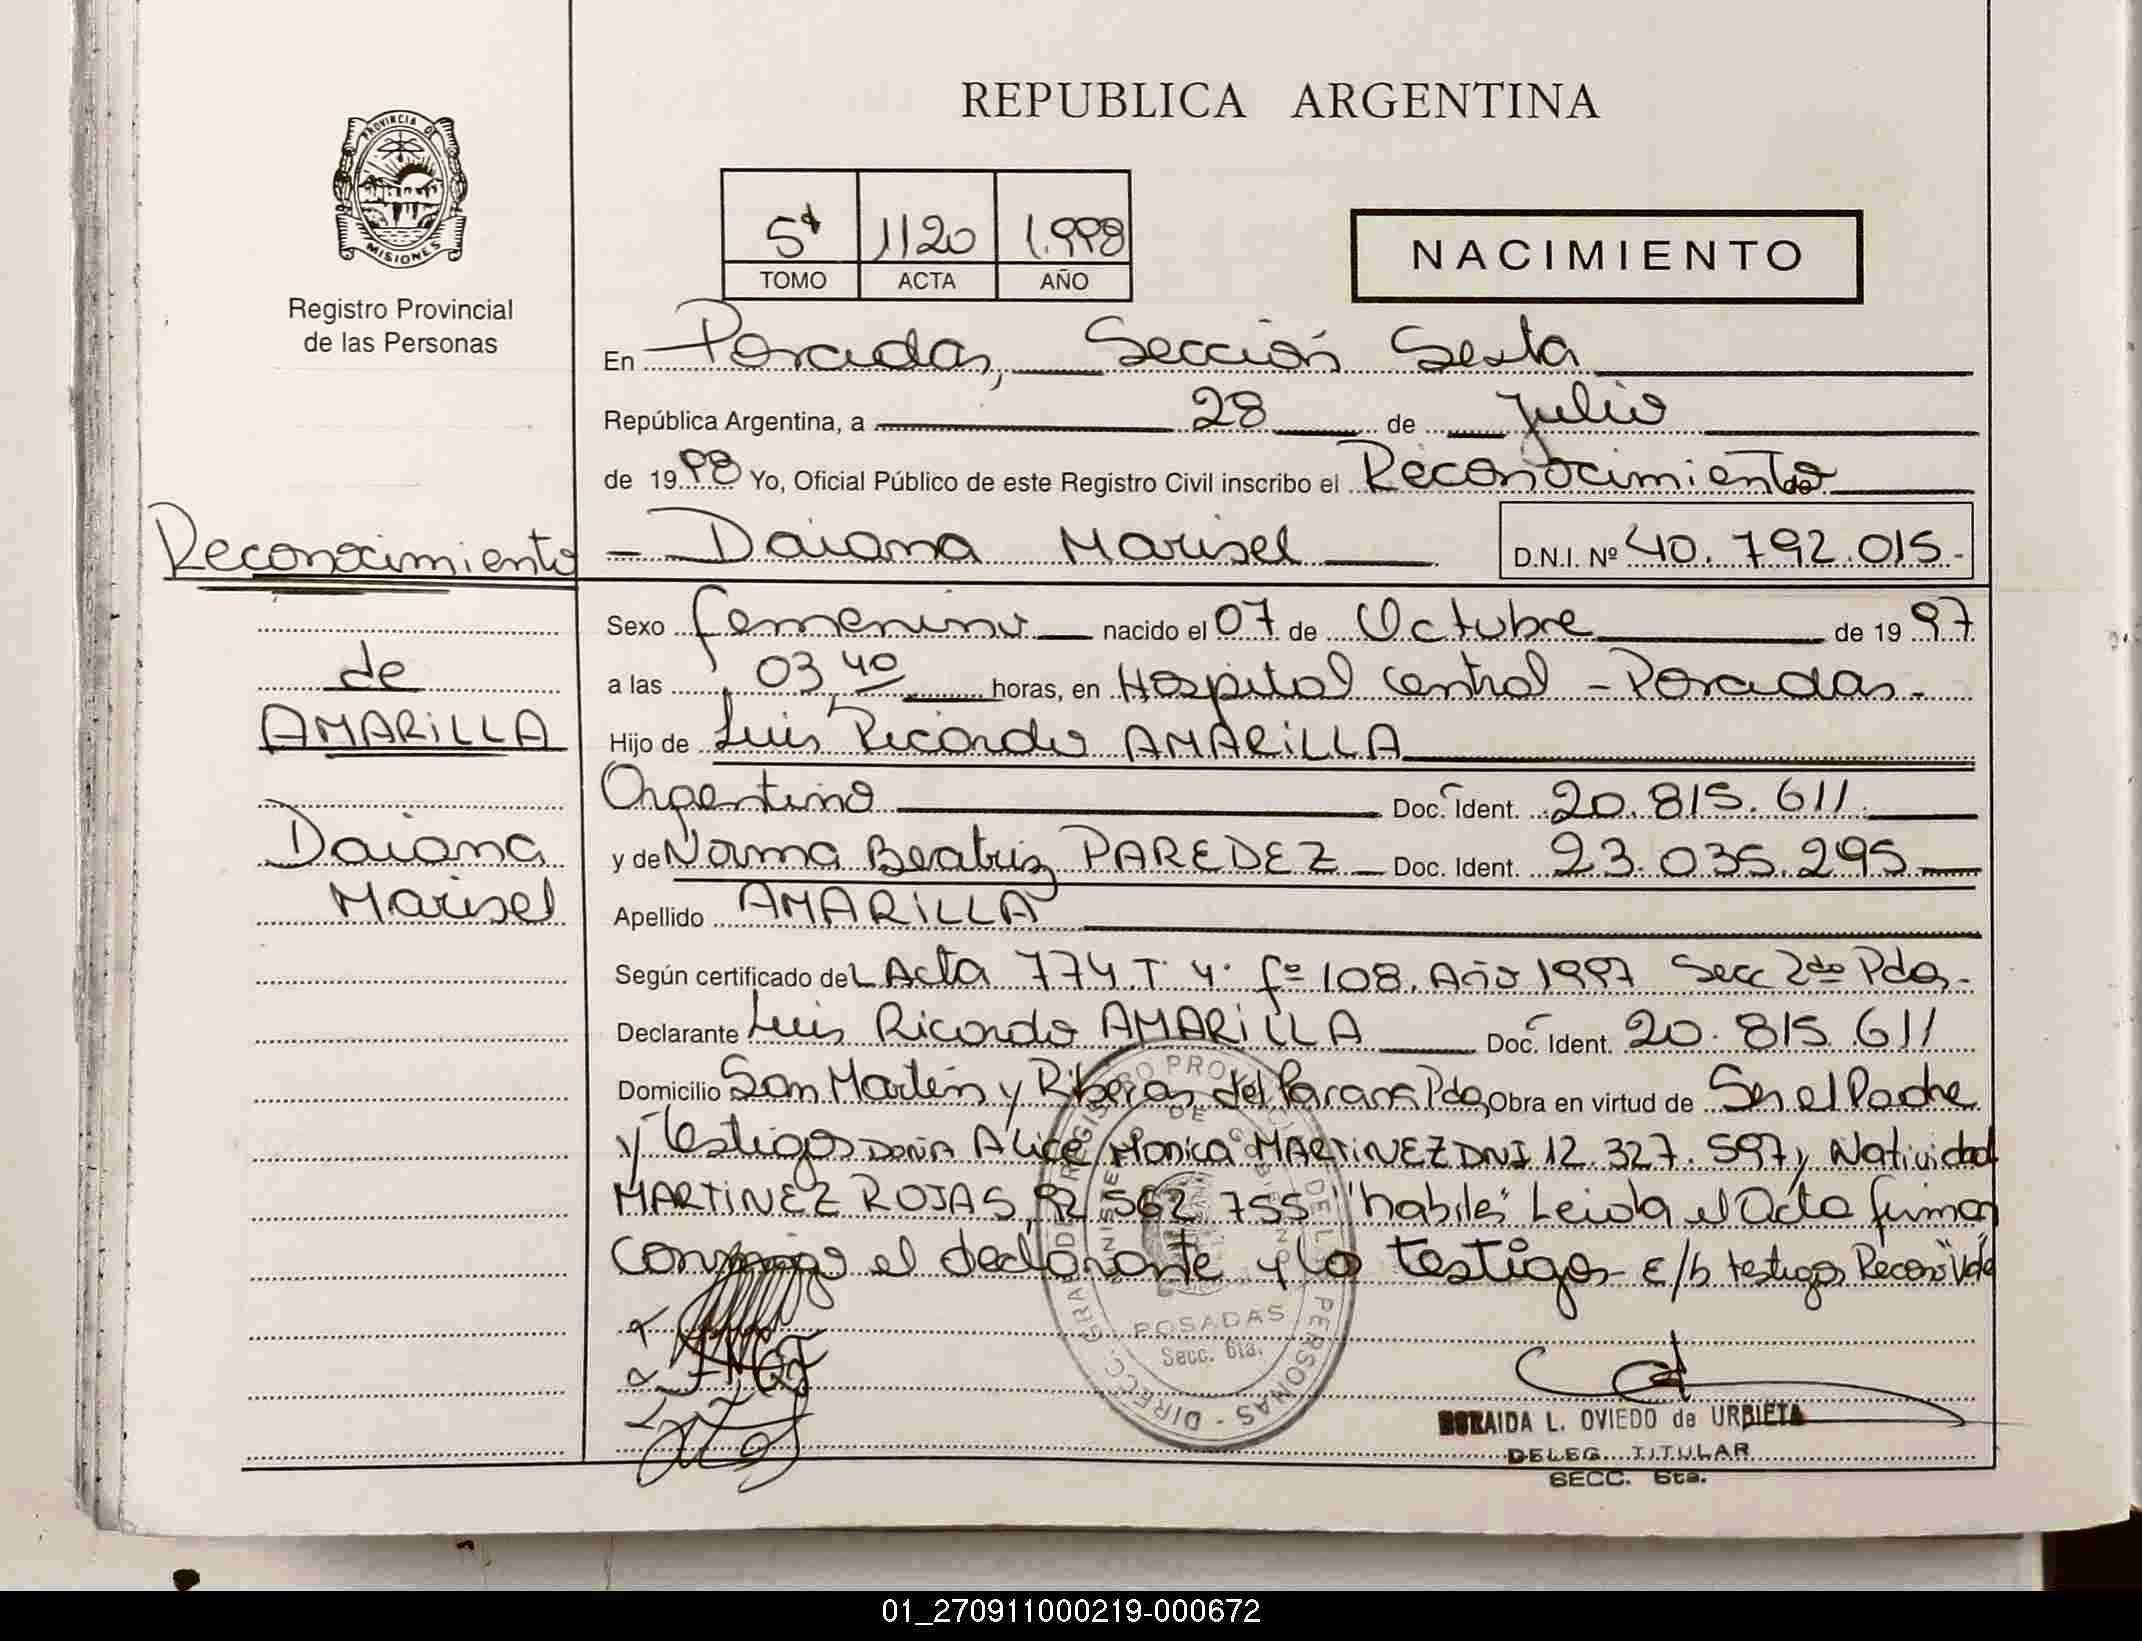 REPUBLICA ARGENTINA
PROVINCIA DE
MISIONES
Registro Provincial
de las Personas
5º 1120 1.998
TOMO ACTA AÑO
NACIMIENTO
En Posadas, Sección Sexta
República Argentina, a 28 de Julio
de 1998 Yo, Oficial Público de este Registro Civil inscribo el Reconocimiento de
Daiana Marisel D.N.I. Nº 40.792.015.-
Reconocimiento
de
AMARiLLA
Daiana
Marisel
Sexo femenino nacido el 07 de Octubre de 1997
a las 03,40 horas, en Hospital Central - Posadas.-
Hijo de Luis Ricardo AMARiLLA
Argentino Doc. Ident. 20.815.611
y de Norma Beatriz PAREDEZ Doc. Ident. 23.035.295
Apellido AMARiLLA
Según certificado del Acta 774. T. 4. fº 108. Año 1997 Secc 2da Pdas.-
Declarante Luis Ricardo AMARiLLA Doc. Ident. 20.815.611
Domicilio San Martin y Riberas del Parana Pdas, Obra en virtud de Ser el Padre
y testigos DOÑA Alice Monica MARTiNEZ DNI 12.327.597 y Natividad
MARTiNEZ ROJAS, 92.562.755 "habiles" Leida el Acta firman
conmigo el declarante y los testigos - E/b testigos Recono "Vale"
DIRECC. GRAL. DE REGISTRO PROVINCIAL DE LAS PERSONAS
POSADAS
Secc. 6ta.
L. OVIEDO de URBIETA
DELEG. TITULAR
SECC. 6ta.
01_270911000219-000672